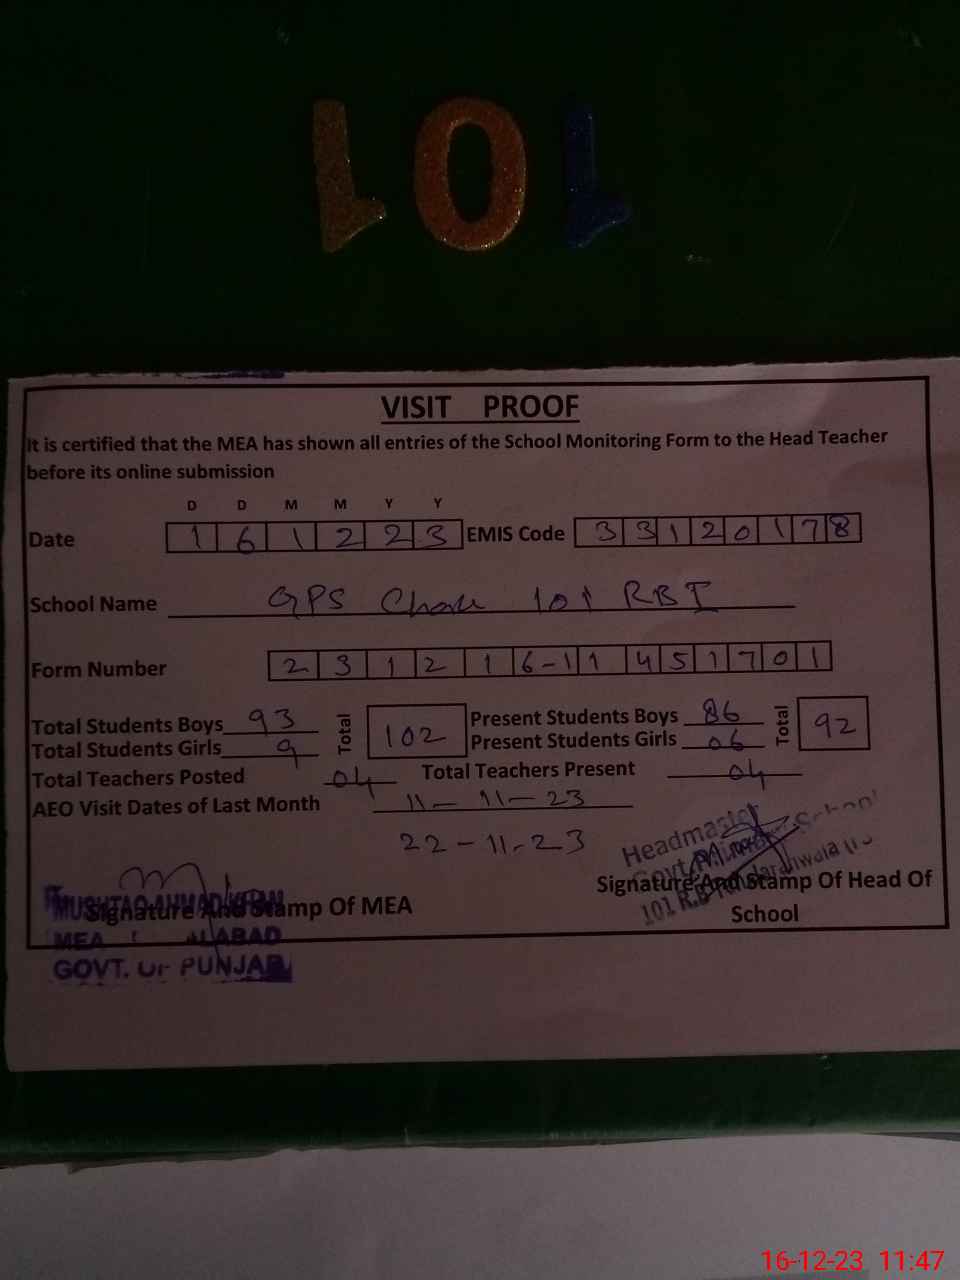 101
VISIT PROOF
It is certified that the MEA has shown all entries of the School Monitoring Form to the Head Teacher
before its online submission
D D M M Y Y
Date 1 6 1 2 2 3 EMIS Code 3 3 1 2 0 1 7 8
School Name GPS Chak 101 RB I
Form Number 2 3 1 2 1 6-1 1 4 5 1 7 0 1
Total Students Boys 93 Total 102 Present Students Boys 86 Total 92
Total Students Girls 9 Present Students Girls 06
Total Teachers Posted 04 Total Teachers Present 04
AEO Visit Dates of Last Month 11-11-23
22-11-23
Headmaster
Govt. School
101 R.B
Signature And Stamp Of MEA
Signature And Stamp Of Head Of
School
MUSHTAQ AHMAD
MEA
GOVT. OF PUNJAB
16-12-23 11:47